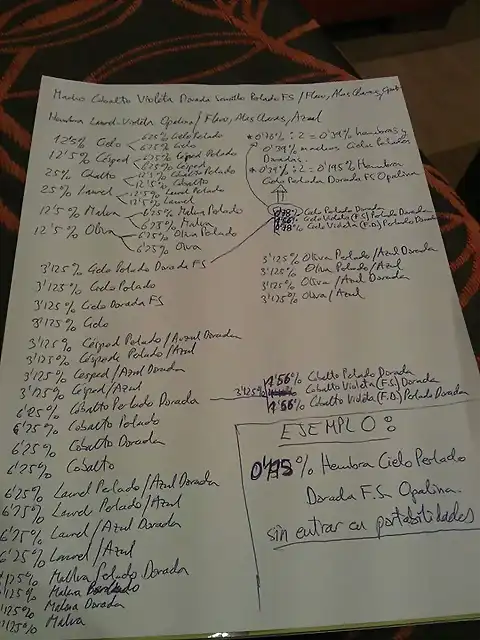 Macho Cobalto Violeta Dorada Sencillo Perlado FS / Fleco, Alas Claras,
Hembra Laurel Violeta Opalina / Fleco, Alas Claras, Azul
12'5% Cielo 6'25% Cielo Perlado
6'25% Cielo
12'5% Césped 6'25% Césped Perlado
6'25% Césped
25% Cobalto 12'5% Cobalto Perlado
12'5% Cobalto
25% Laurel 12'5% Laurel Perlado
12'5% Laurel
12'5% Malva 6'25% Malva Perlado
6'25% Malva
12'5% Oliva 6'25% Oliva Perlado
6'25% Oliva
* 0'78% : 2 = 0'39% hembras y
0'39% machos Cielo Perlados
Dorados.
* 0'39% : 2 = 0'195% Hembra
Cielo Perlada Dorada FS Opalina
0'78% Cielo Perlado Dorada
Cielo Violeta (F.S) Perlado Dorada
0'78% Cielo Violeta (F.D) Perlado Dorada
3'125% Cielo Perlado Dorada FS
3'125% Cielo Perlado
3'125% Cielo Dorada FS
3'125% Cielo
3'125% Césped Perlado / Azul Dorada
3'125% Césped Perlado / Azul
3'125% Césped / Azul Dorada
3'125% Césped / Azul
6'25% Cobalto Perlado Dorada
6'25% Cobalto Perlado
6'25% Cobalto Dorada
6'25% Cobalto
6'25% Laurel Perlado / Azul Dorada
6'25% Laurel Perlado / Azul
6'25% Laurel / Azul Dorada
6'25% Laurel / Azul
3'125% Malva Perlado Dorada
3'125% Malva Perlado
3'125% Malva Dorada
3'125% Malva
3'125% Oliva Perlado / Azul Dorada
3'125% Oliva Perlado / Azul
3'125% Oliva / Azul Dorada
3'125% Oliva / Azul
1'56% Cobalto Perlado Dorada
3'125% Cobalto Violeta (F.S.) Dorada
1'56% Cobalto Violeta (F.D.) Perlado Dorada
EJEMPLO:
0'195% Hembra Cielo Perlado
Dorada F.S. Opalina.
sin entrar en portabilidades